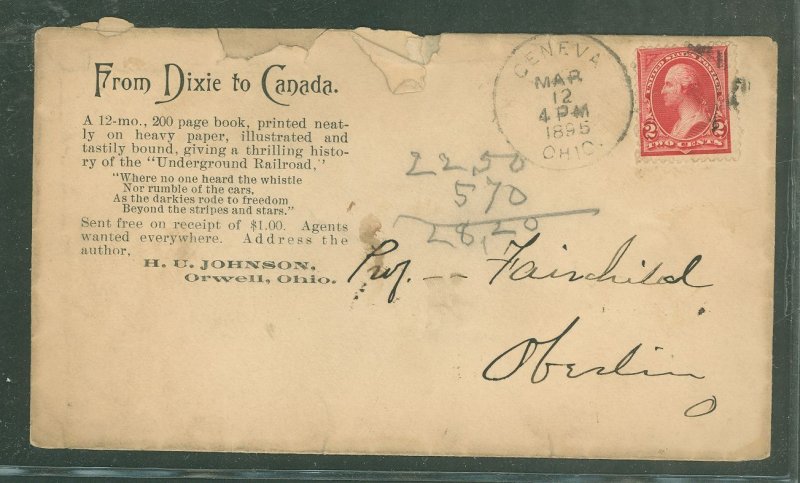 From Dixie to Canada.
A 12-mo., 200 page book, printed neat-
ly on heavy paper, illustrated and
tastily bound, giving a thrilling histo-
ry of the "Underground Railroad,"
"Where no one heard the whistle
Nor rumble of the cars,
As the darkies rode to freedom
Beyond the stripes and stars."
Sent free on receipt of $1.00. Agents
wanted everywhere. Address the
author,
H. U. JOHNSON,
Orwell, Ohio.
GENEVA
MAR
12
4 PM
1895
OHIO.
UNITED STATES POSTAGE
2 2
TWO CENTS
22,50
570
28,20
Prof. -- Fairchild
Oberlin